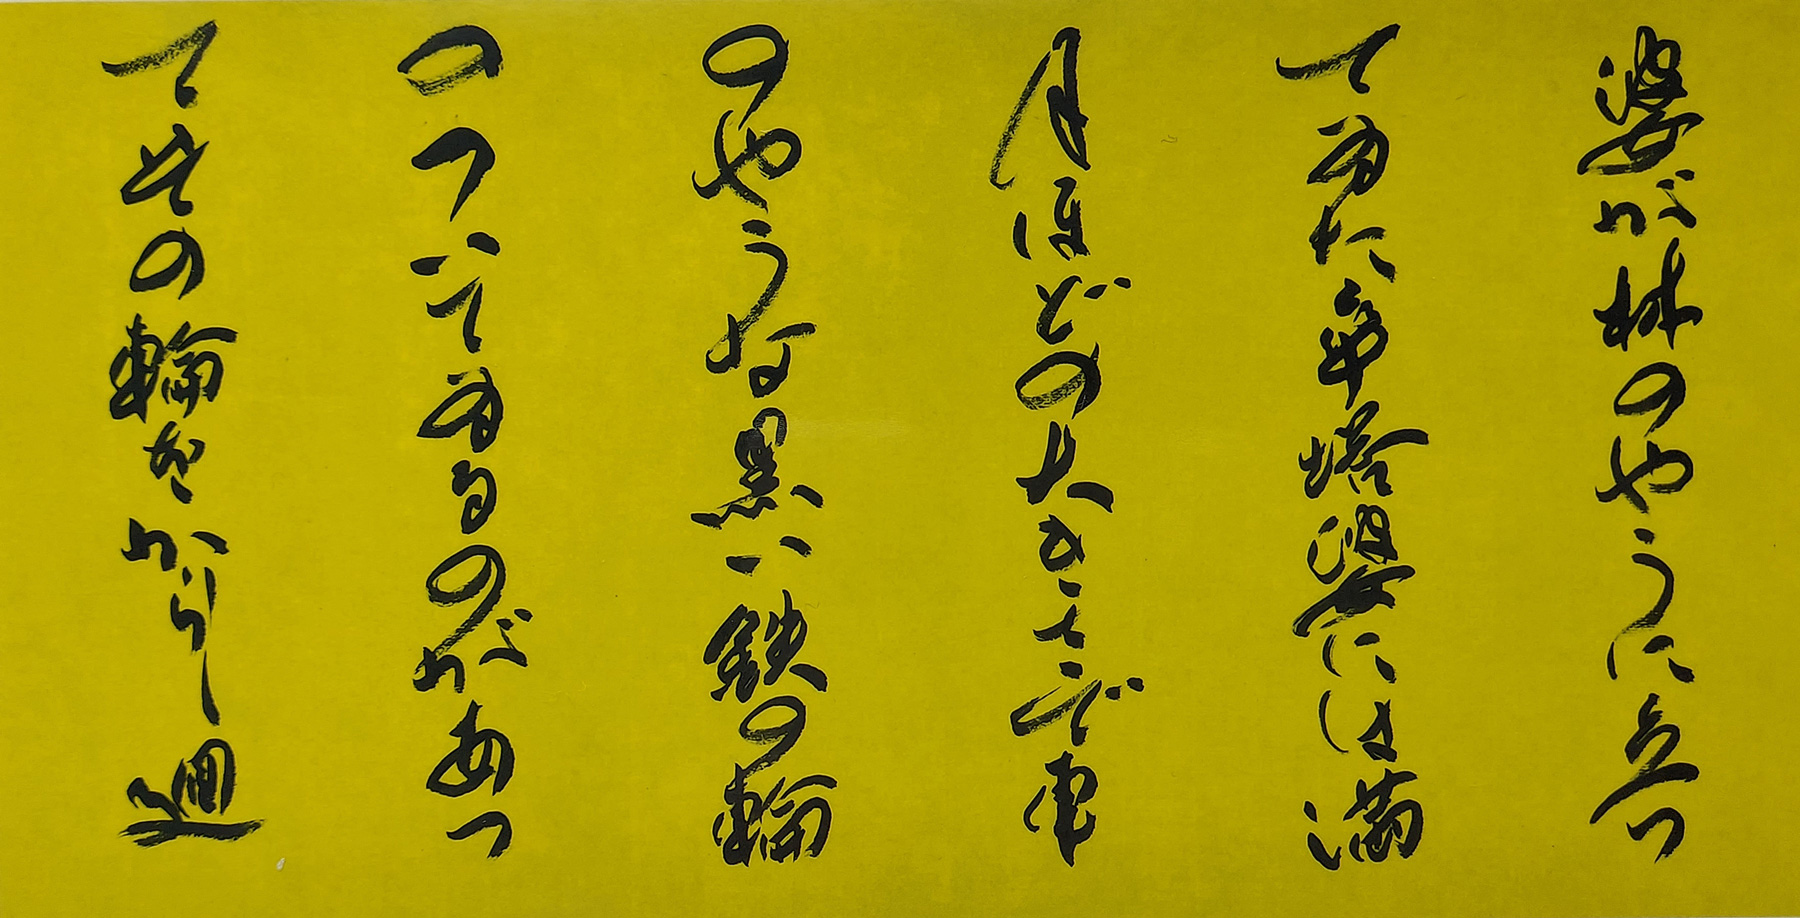 婆が林のやうに立つ
てゐた卒塔婆には満
月ほどの大きさで車
のやうな黒い鉄の輪
のついてゐるのがあつ
てその輪をからからと廻